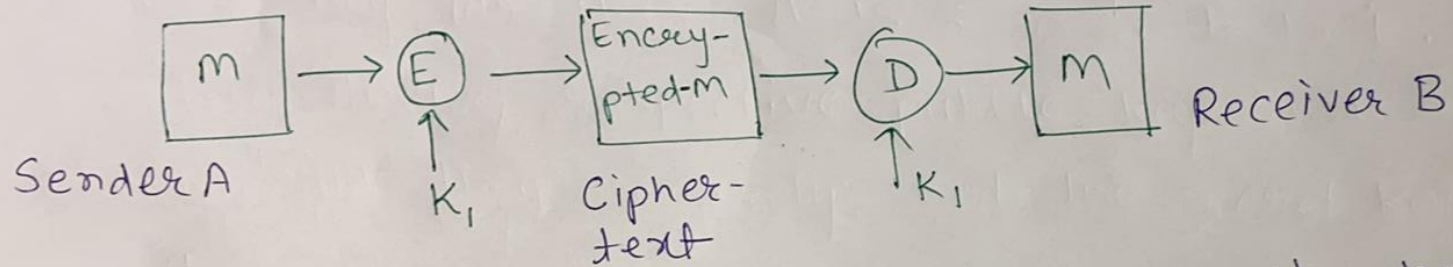 m
E
Encry-
pted-m
D
m
Receiver B
Sender A
K₁
Cipher-
text
K₁